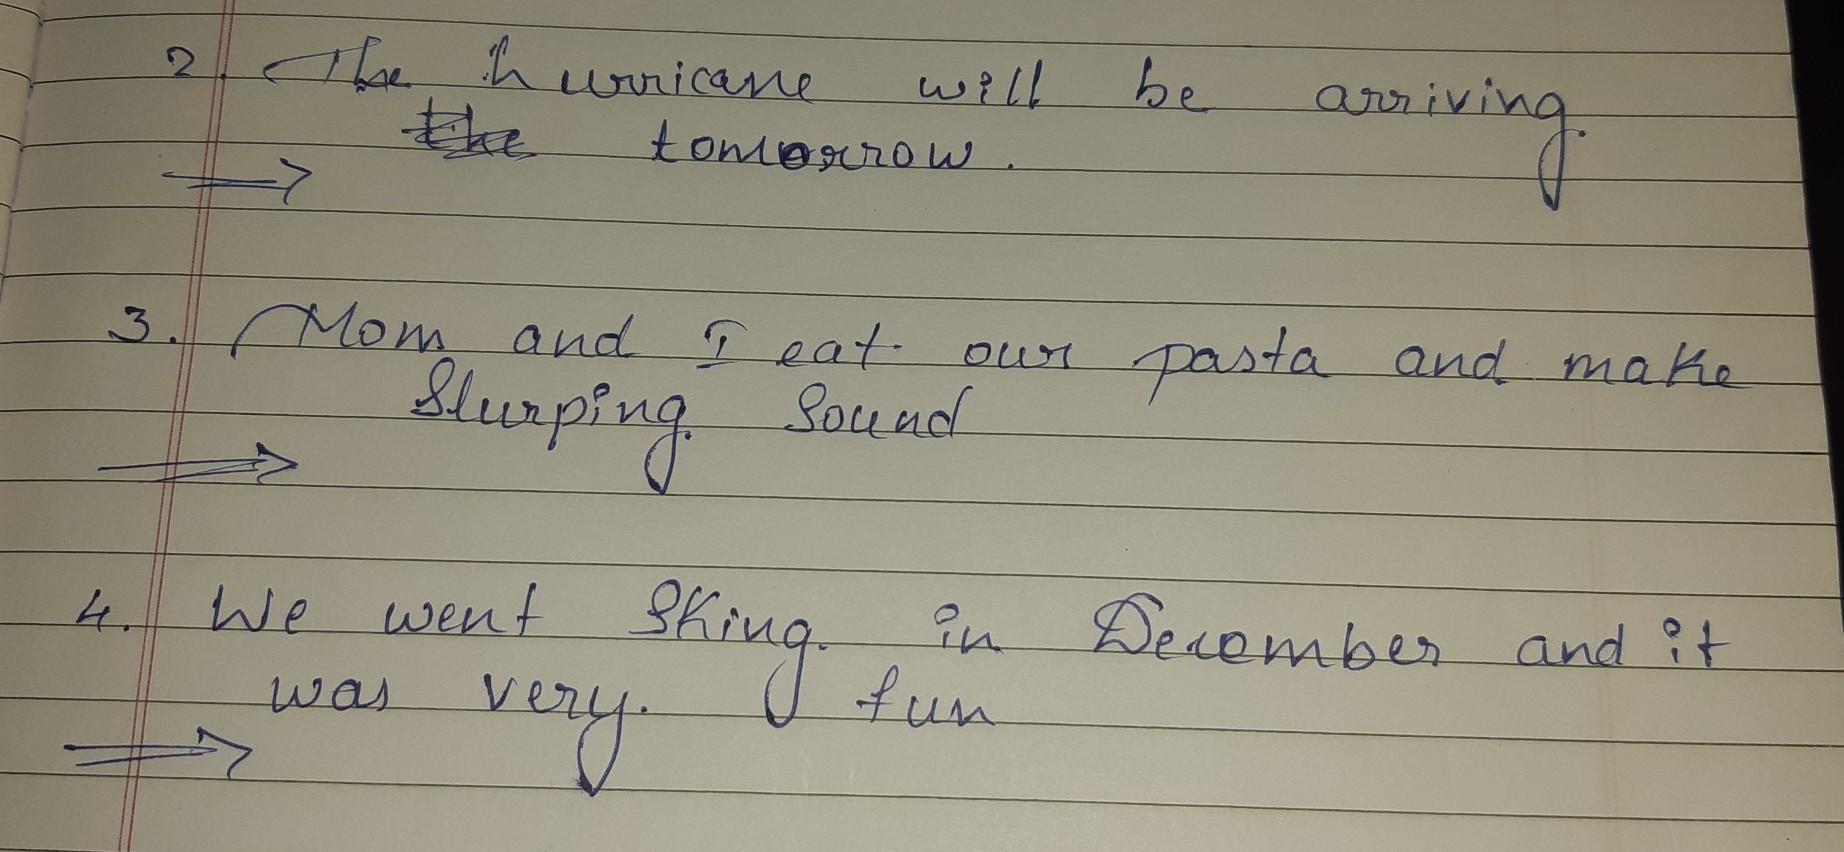 2. The hurricane will be arriving
the tomorrow.
3. Mom and I eat our pasta and make
Slurping Sound
4. We went Sking in December and it
was very fun